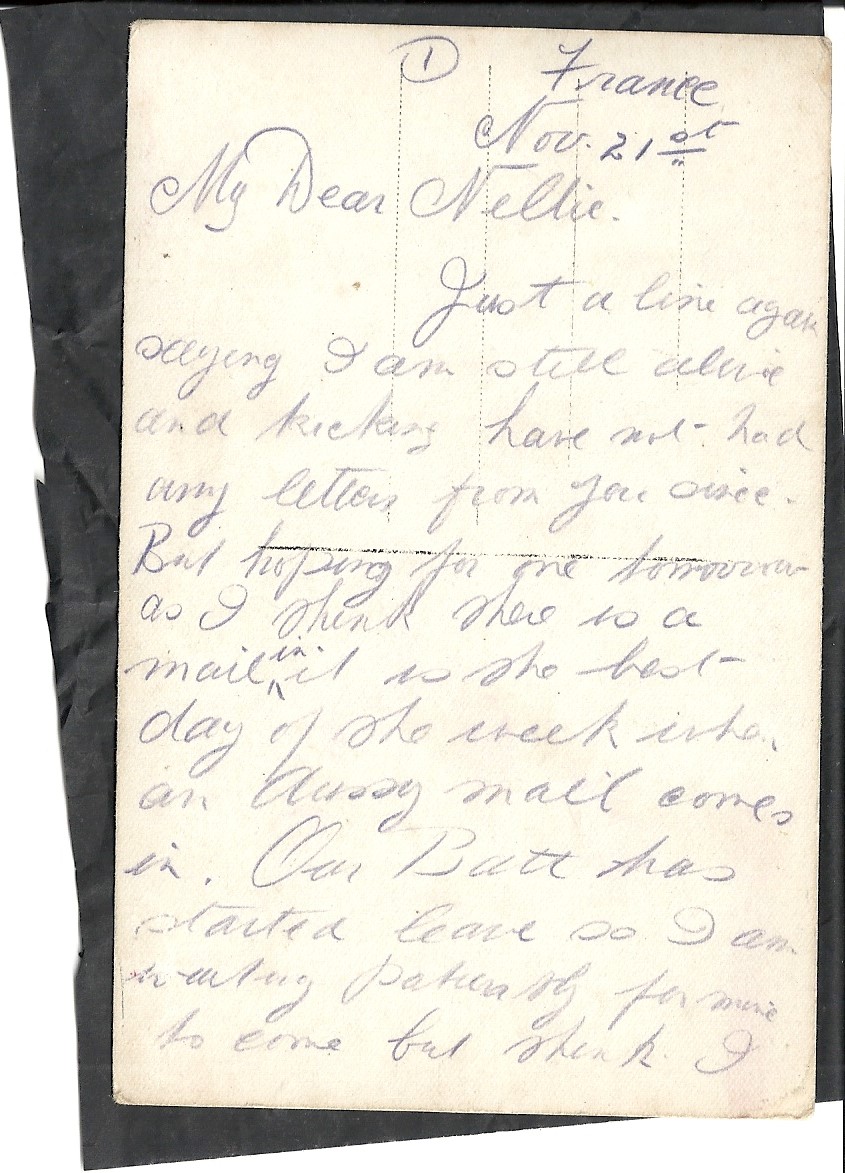 ① France
Nov. 21st
My Dear Nellie.
Just a line again
saying I am still alive
and kicking have not had
any letters from you since.
But hoping for one tomorrow
as I think there is a
mail in. it is the best
day of the week when
an Aussy mail comes
in. Our Batt has
started leave so I am
waiting patiently for mine
to come but think I